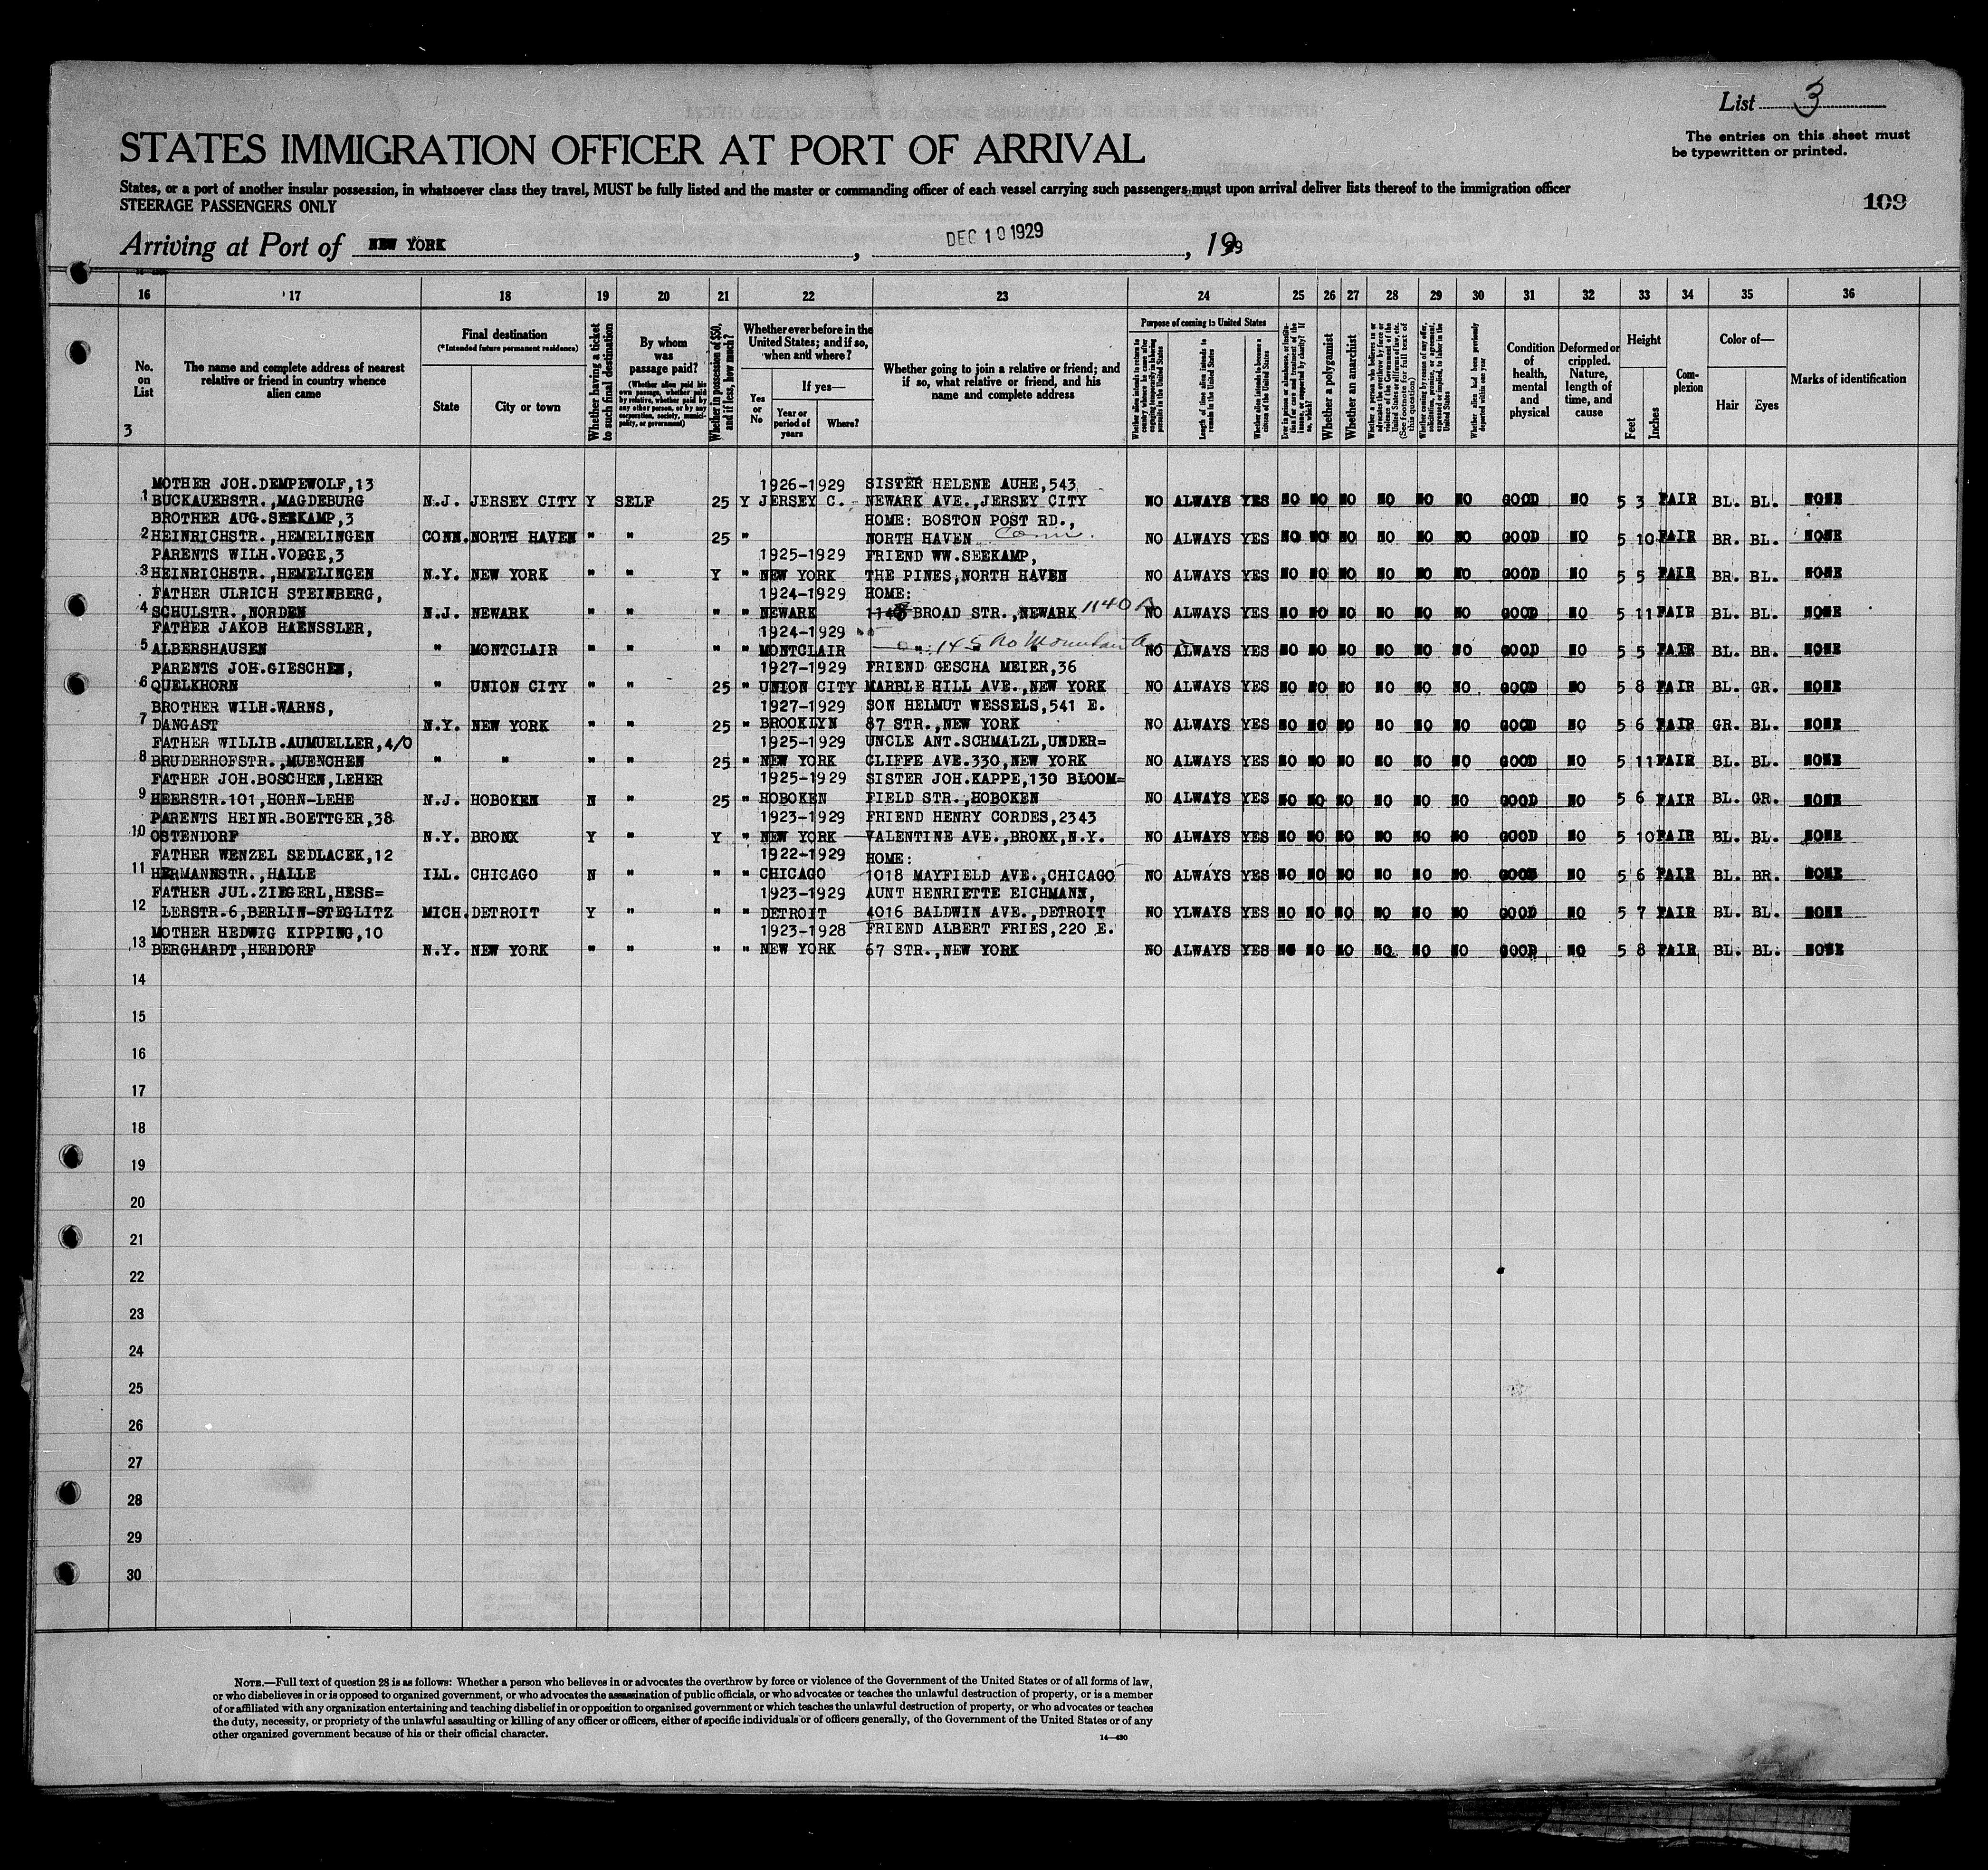 List 3
The entries on this sheet must
be typewritten or printed.
STATES IMMIGRATION OFFICER AT PORT OF ARRIVAL
States, or a port of another insular possession, in whatsoever class they travel, MUST be fully listed and the master or commanding officer of each vessel carrying such passengers must upon arrival deliver lists thereof to the immigration officer
STEERAGE PASSENGERS ONLY
109
Arriving at Port of NEW YORK, DEC 10 1929, 1929
16 17 18 19 20 21 22 23 24 25 26 27 28 29 30 31 32 33 34 35 36
No. on List
3
The name and complete address of nearest relative or friend in country whence alien came
Final destination
(*Intended future permanent residence)
State City or town
Whether having a ticket to such final destination
By whom was passage paid?
(Whether alien paid his own passage, whether paid by relative, whether paid by any other person, or by any corporation, society, municipality, or government)
Whether in possession of $50, and if less, how much?
Whether ever before in the United States; and if so, when and where?
Yes or No
If yes—
Year or period of years Where?
Whether going to join a relative or friend; and if so, what relative or friend, and his name and complete address
Purpose of coming to United States
Whether alien intends to return to country whence he came after engaging temporarily in laboring pursuits in the United States
Length of time alien intends to remain in the United States
Whether alien intends to become a citizen of the United States
Whether a polygamist
Whether an anarchist
Whether alien had been previously deported within one year
Condition of health, mental and physical
Deformed or crippled. Nature, length of time, and cause
Height
Feet Inches
Complexion
Color of—
Hair Eyes
Marks of identification
MOTHER JOH.DEMPEWOLF,13 1926-1929 SISTER HELENE AUHE,543
1 BUCKAUERSTR.,MAGDEBURG N.J. JERSEY CITY Y SELF 25 Y JERSEY C. NEWARK AVE.,JERSEY CITY NO ALWAYS YES NO NO NO NO NO NO GOOD NO 5 3 FAIR BL. BL. NONE
BROTHER AUG.SEEKAMP,3 HOME: BOSTON POST RD.,
2 HEINRICHSTR.,HEMELINGEN CONN. NORTH HAVEN " " 25 " NORTH HAVEN Conn. NO ALWAYS YES NO NO NO NO NO NO GOOD NO 5 10 FAIR BR. BL. NONE
PARENTS WILH.VOEGE,3 1925-1929 FRIEND WW.SEEKAMP,
3 HEINRICHSTR.,HEMELINGEN N.Y. NEW YORK " " Y " NEW YORK THE PINES,NORTH HAVEN NO ALWAYS YES NO NO NO NO NO NO GOOD NO 5 5 FAIR BR. BL. NONE
FATHER ULRICH STEINBERG, 1924-1929 HOME:
4 SCHULSTR.,NORDEN N.J. NEWARK " " " " NEWARK BROAD STR.,NEWARK 1140 NO ALWAYS YES NO NO NO NO NO NO GOOD NO 5 11 FAIR BL. BL. NONE
FATHER JAKOB HAENSSLER, 1924-1929
5 ALBERSHAUSEN " MONTCLAIR " " " " MONTCLAIR 145 No Mountain Av NO ALWAYS YES NO NO NO NO NO NO GOOD NO 5 5 FAIR BL. BR. NONE
PARENTS JOH.GIESCHEN, 1927-1929 FRIEND GESCHA MEIER,36
6 QUELKHORN " UNION CITY " " 25 " UNION CITY MARBLE HILL AVE.,NEW YORK NO ALWAYS YES NO NO NO NO NO NO GOOD NO 5 8 FAIR BL. GR. NONE
BROTHER WILH.WARNS, 1927-1929 SON HELMUT WESSELS,541 E.
7 DANGAST N.Y. NEW YORK " " 25 " BROOKLYN 87 STR.,NEW YORK NO ALWAYS YES NO NO NO NO NO NO GOOD NO 5 6 FAIR GR. BL. NONE
FATHER WILLIB.AUMUELLER,4/0 1925-1929 UNCLE ANT.SCHMALZL,UNDER=
8 BRUDERHOFSTR.,MUENCHEN " " " " 25 " NEW YORK CLIFFE AVE.330,NEW YORK NO ALWAYS YES NO NO NO NO NO NO GOOD NO 5 11 FAIR BL. BL. NONE
FATHER JOH.BOSCHEN,LEHER 1925-1929 SISTER JOH.KAPPE,130 BLOOM=
9 HEERSTR.101,HORN-LEHE N.J. HOBOKEN N " 25 " HOBOKEN FIELD STR.,HOBOKEN NO ALWAYS YES NO NO NO NO NO NO GOOD NO 5 6 FAIR BL. GR. NONE
PARENTS HEINR.BOETTGER,38 1923-1929 FRIEND HENRY CORDES,2343
10 OSTENDORF N.Y. BRONX Y " Y " NEW YORK VALENTINE AVE.,BRONX,N.Y. NO ALWAYS YES NO NO NO NO NO NO GOOD NO 5 10 FAIR BL. BL. NONE
FATHER WENZEL SEDLACEK,12 1922-1929 HOME:
11 HERMANNSTR.,HALLE ILL. CHICAGO N " " " CHICAGO 1018 MAYFIELD AVE.,CHICAGO NO ALWAYS YES NO NO NO NO NO NO GOOD NO 5 6 FAIR BL. BR. NONE
FATHER JUL.ZIEGERL,HESS= 1923-1929 AUNT HENRIETTE EICHMANN,
12 LERSTR.6,BERLIN-STEGLITZ MICH. DETROIT Y " " " DETROIT 4016 BALDWIN AVE.,DETROIT NO YLWAYS YES NO NO NO NO NO NO GOOD NO 5 7 FAIR BL. BL. NONE
MOTHER HEDWIG KIPPING,10 1923-1928 FRIEND ALBERT FRIES,220 E.
13 BERGHARDT,HERDORF N.Y. NEW YORK " " " " NEW YORK 67 STR.,NEW YORK NO ALWAYS YES NO NO NO NO NO NO GOOD NO 5 8 FAIR BL. BL. NONE
14
15
16
17
18
19
20
21
22
23
24
25
26
27
28
29
30
NOTE.—Full text of question 28 is as follows: Whether a person who believes in or advocates the overthrow by force or violence of the Government of the United States or of all forms of law,
or who disbelieves in or is opposed to organized government, or who advocates the assassination of public officials, or who advocates or teaches the unlawful destruction of property, or is a member
of or affiliated with any organization entertaining and teaching disbelief in or opposition to organized government or which teaches the unlawful destruction of property, or who advocates or teaches
the duty, necessity, or propriety of the unlawful assaulting or killing of any officer or officers, either of specific individuals or of officers generally, of the Government of the United States or of any
other organized government because of his or their official character.
14—430